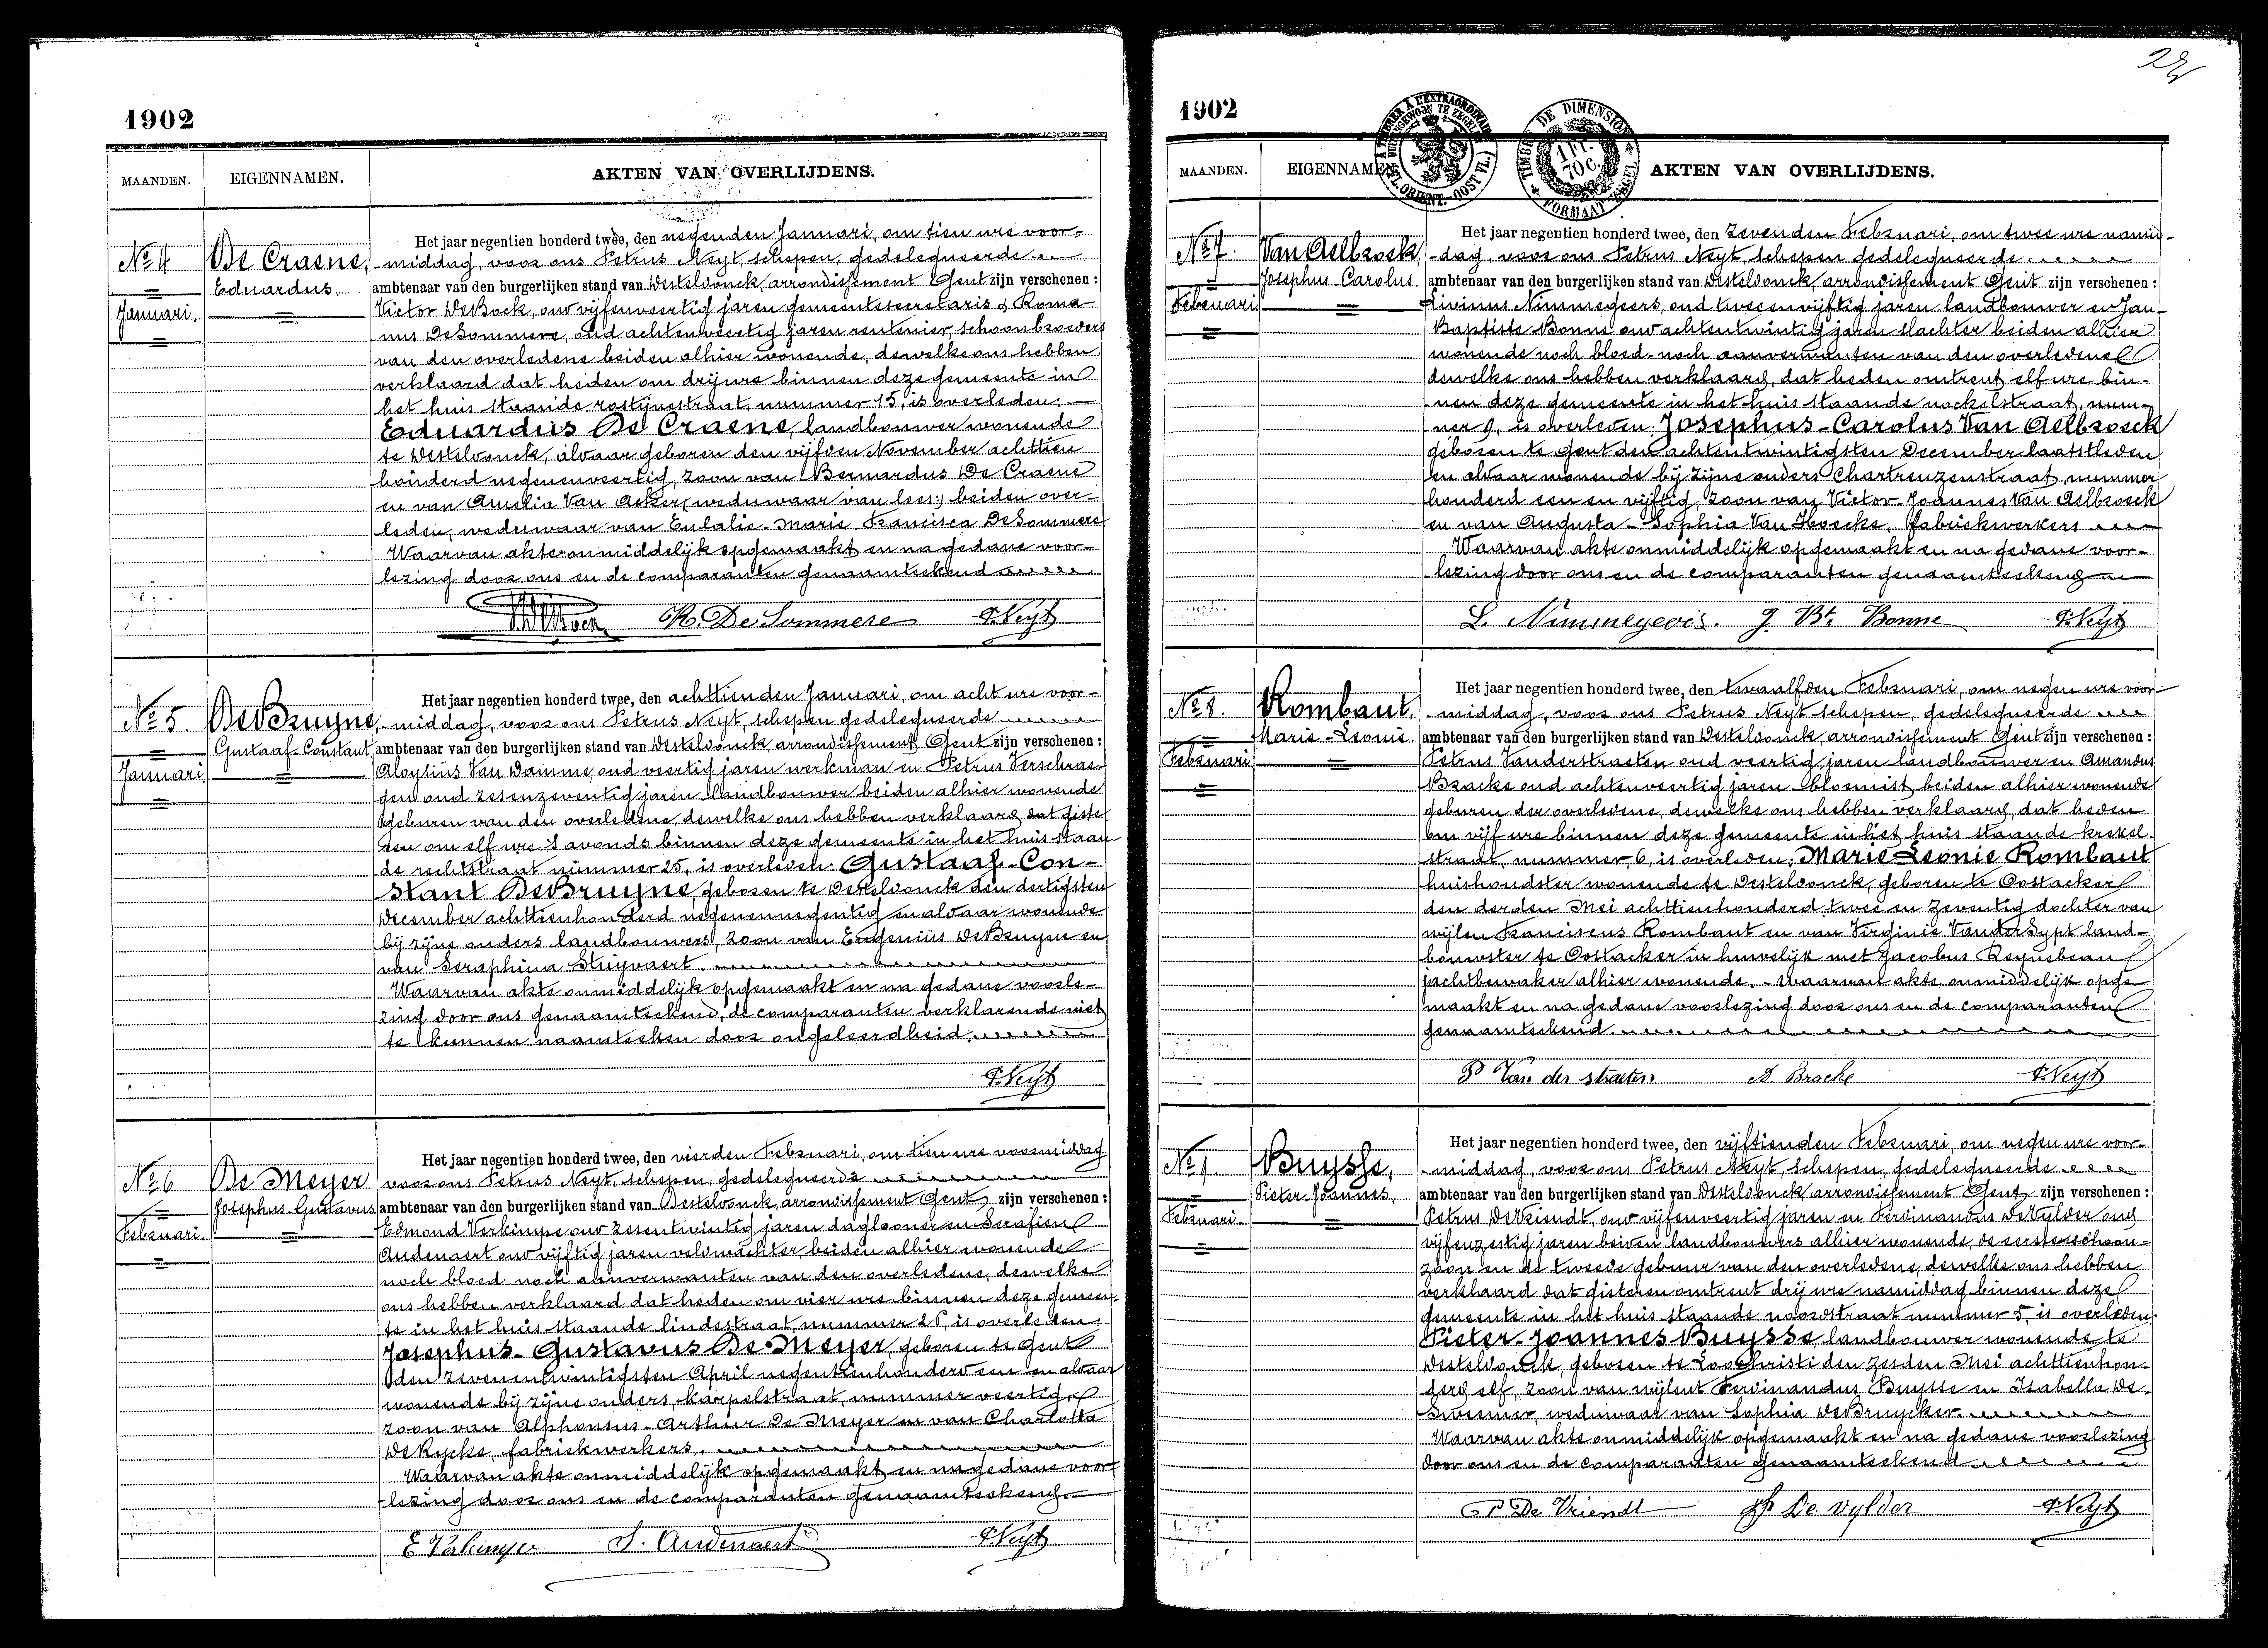 1902
MAANDEN.
EIGENNAMEN.
AKTEN VAN OVERLIJDENS.
No 4
Januari.
De Craene,
Eduardus.
Het jaar negentien honderd twee, den negenden Januari, om tien ure voor-
middag, voor ons Petrus Neyt, schepen, gedelegueerde
ambtenaar van den burgerlijken stand van Desteldonck, arrondissement Gent zijn verschenen :
Victor DeBock, oud vijfenveertig jaren gemeentesecretaris & Roma-
nus DeSommere, oud achtenveertig jaren rentenier, schoonbroeders
van den overledene beiden alhier wonende, dewelke ons hebben
verklaard dat heden om drij ure binnen deze gemeente in
het huis staande rostijnestraat, nummer 15, is overleden:
Eduardus De Craene, landbouwer wonende
te Desteldonck, aldaar geboren den vijfden November achttien
honderd negenenveertig, zoon van Bernardus De Craene
en van Amelia Van Acker, beiden over-
leden, weduwaar van Eulalie-Marie-Francisca DeSommere
Waarvan akte onmiddelijk opgemaakt en na gedane voor-
lezing door ons en de comparanten genaamteekend
R. De Sommere P. Neyt
No 5
Januari
DeBruyne,
Gustaaf-Constant
Het jaar negentien honderd twee, den achttienden Januari, om acht ure voor-
middag, voor ons Petrus Neyt, schepen gedelegueerde
ambtenaar van den burgerlijken stand van Desteldonck, arrondissement Gent zijn verschenen :
Aloysius Van Damme, oud veertig jaren werkman en Petrus Verschrae-
gen oud zesenzeventig jaren landbouwer beiden alhier wonende
geburen van den overledene, dewelke ons hebben verklaard, dat giste-
ren om elf ure s'avonds binnen deze gemeente in het huis staan-
de rechtstraat nummer 25, is overleden: Gustaaf-Con-
stant DeBruyne, geboren te Desteldonck den dertigsten
December achttienhonderd negenennegentig en aldaar wonende
bij zijne ouders landbouwers, zoon van Eugenius DeBruyne en
van Seraphina Stuyvaert.
Waarvan akte onmiddelijk opgemaakt en na gedane voorle-
zing door ons genaamteekend, de comparanten verklarende niet
te kunnen naamteeken door ongeleerdheid.
P. Neyt
No 6
Februari.
De Meyer
Josephus-Gustavus
Het jaar negentien honderd twee, den vierden Februari, om tien ure voormiddag
voor ons Petrus Neyt, schepen, gedelegueerde
ambtenaar van den burgerlijken stand van Desteldonck, arrondissement Gent, zijn verschenen :
Edmond Verkimpe oud zesentwintig jaren daglooner en Serafien
Audenaert oud vijftig jaren veldwachter, beiden alhier wonende
noch bloed noch aanverwanten van den overledene, dewelke
ons hebben verklaard dat heden om vier ure binnen deze gemeen-
te in het huis staande lindestraat, nummer is overleden:
Josephus-Gustavus De Meyer, geboren te Gent
den zevenentwintigsten April negentienhonderd een en aldaar
wonende bij zijne ouders, karpelstraat, nummer veertig
zoon van Alphonsus-Arthur De Meyer en van Charlotte
DeRycke, fabriekwerkers,
Waarvan akte onmiddelijk opgemaakt en na gedane voor-
lezing door ons en de comparanten genaamteekend.
E Verkimpe S. Audenaert P. Neyt
1902
MAANDEN.
EIGENNAMEN.
AKTEN VAN OVERLIJDENS.
TIMBRE DE DIMENSION
1 Fr.
70 C.
FORMAAT ZEGEL
No 7.
Februari
Van Aelbroeck,
Josephus Carolus.
Het jaar negentien honderd twee, den zevenden Februari, om twee ure namid-
dag, voor ons Petrus Neyt, schepen gedelegueerde
ambtenaar van den burgerlijken stand van Desteldonck, arrondissement Gent zijn verschenen :
Livinus Nimmegeers, oud tweeenvijftig jaren landbouwer en Jan-
Baptiste Bonne oud achtentwintig jaren slachter beiden alhier
wonende noch bloed- noch aanverwanten van den overledene
dewelke ons hebben verklaard, dat heden omtrent elf ure bin-
nen deze gemeente in het huis staande nockelstraat, num-
mer 9, is overleden: Josephus-Carolus Van Aelbroeck
geboren te Gent den achtentwintigsten December laatstleden
en aldaar wonende bij zijne ouders Chartreuzenstraat, nummer
honderd een en vijftig, zoon van Victor Joannes Van Aelbroeck
en van Augusta-Sophia Van Hoecke, fabriekwerkers
Waarvan akte onmiddelijk opgemaakt en na gedane voor-
lezing door ons en de comparanten genaamteekend
L. Nimmegeers. J. Bt. Bonne P. Neyt
No 8.
Februari
Rombaut,
Marie-Leonie
Het jaar negentien honderd twee, den twaalfden Februari, om negen ure voor-
middag, voor ons Petrus Neyt schepen, gedelegueerde
ambtenaar van den burgerlijken stand van Desteldonck, arrondissement Gent zijn verschenen :
Petrus Vanderstraeten oud veertig jaren landbouwer en Amandus
Bracke oud achtenveertig jaren bloemist beiden alhier wonende
geburen der overledene, dewelke ons hebben verklaard, dat heden
om vijf ure binnen deze gemeente in het huis staande krekel-
straat, nummer 6, is overleden: Marie Leonie Rombaut
huishoudster wonende te Desteldonck, geboren te Oostacker
den derden Mei achttienhonderd twee en zeventig dochter van
wijlen Franciscus Rombaut en van Virginie VanderSypt land-
bouwster te Oostacker in huwelijk met Jacobus Reynebeau
jachtbewaker alhier wonende. Waarvan akte onmiddelijk opge-
maakt en na gedane voorlezing door ons en de comparanten
genaamteekend.
P Van der straeten A Bracke P. Neyt
No 9.
Februari.
Buysse,
Pieter-Joannes,
Het jaar negentien honderd twee, den vijftienden Februari, om negen ure voor-
middag, voor ons Petrus Neyt, schepen, gedelegueerde
ambtenaar van den burgerlijken stand van Desteldonck, arrondissement Gent, zijn verschenen :
Petrus DeVriendt, oud vijfenveertig jaren en Ferdinandus DeVylder oud
vijfenzestig jaren beiden landbouwers alhier wonende, de eerste schoon-
zoon en de tweede gebuur van den overledene, dewelke ons hebben
verklaard dat gisteren omtrent drij ure namiddag binnen deze
gemeente in het huis staande noordstraat nummer 5, is overleden
Pieter-Joannes Buysse landbouwer wonende te
Desteldonck, geboren te Loochristi den zesden Mei achttienhon-
derd elf, zoon van wijlent Ferdinandus Buysse en Isabella De
Sweemer, weduwaar van Sophia DeBruycker.
Waarvan akte onmiddelijk opgemaakt en na gedane voorlezing
door ons en de comparanten genaamteekend
P De Vriendt De Vylder P. Neyt